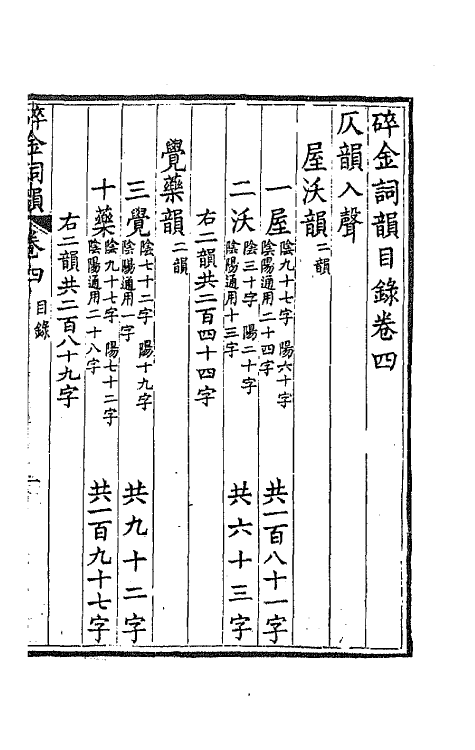 碎金詞韻目錄卷四
仄韻入聲
屋沃韻二韻
一屋陰九十七字 陽六十字陰陽通用二十四字 共一百八十一字
二沃陰三十字 陽二十字陰陽通用十三字 共六十三字
右二韻共二百四十四字
覺藥韻二韻
三覺陰七十二字 陽十九字陰陽通用一字 共九十二字
十藥陰九十七字 陽七十二字陰陽通用二十八字 共一百九十七字
右二韻共二百八十九字
碎金詞韻 卷四 目錄 一